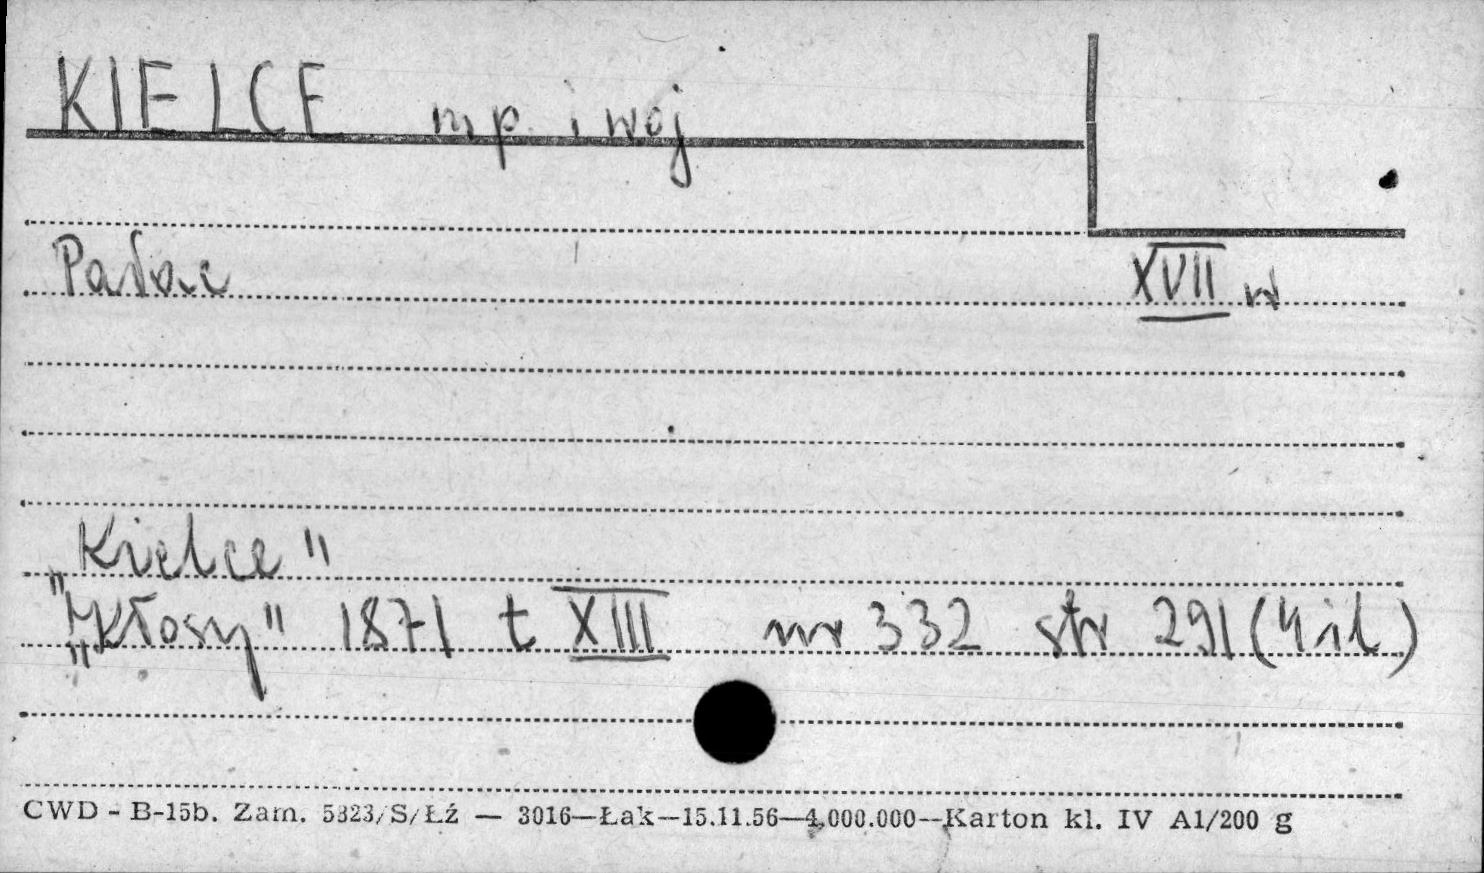 KIELCE mp. i woj
Pałac XVII w
„Kielce"
„Kłosy" 1871 t XIII nr 332 str 291 (4 il)
CWD - B-15b. Zam. 5823/S/Łź — 3016—Łak—15.11.56—4.000.000—Karton kl. IV A1/200 g